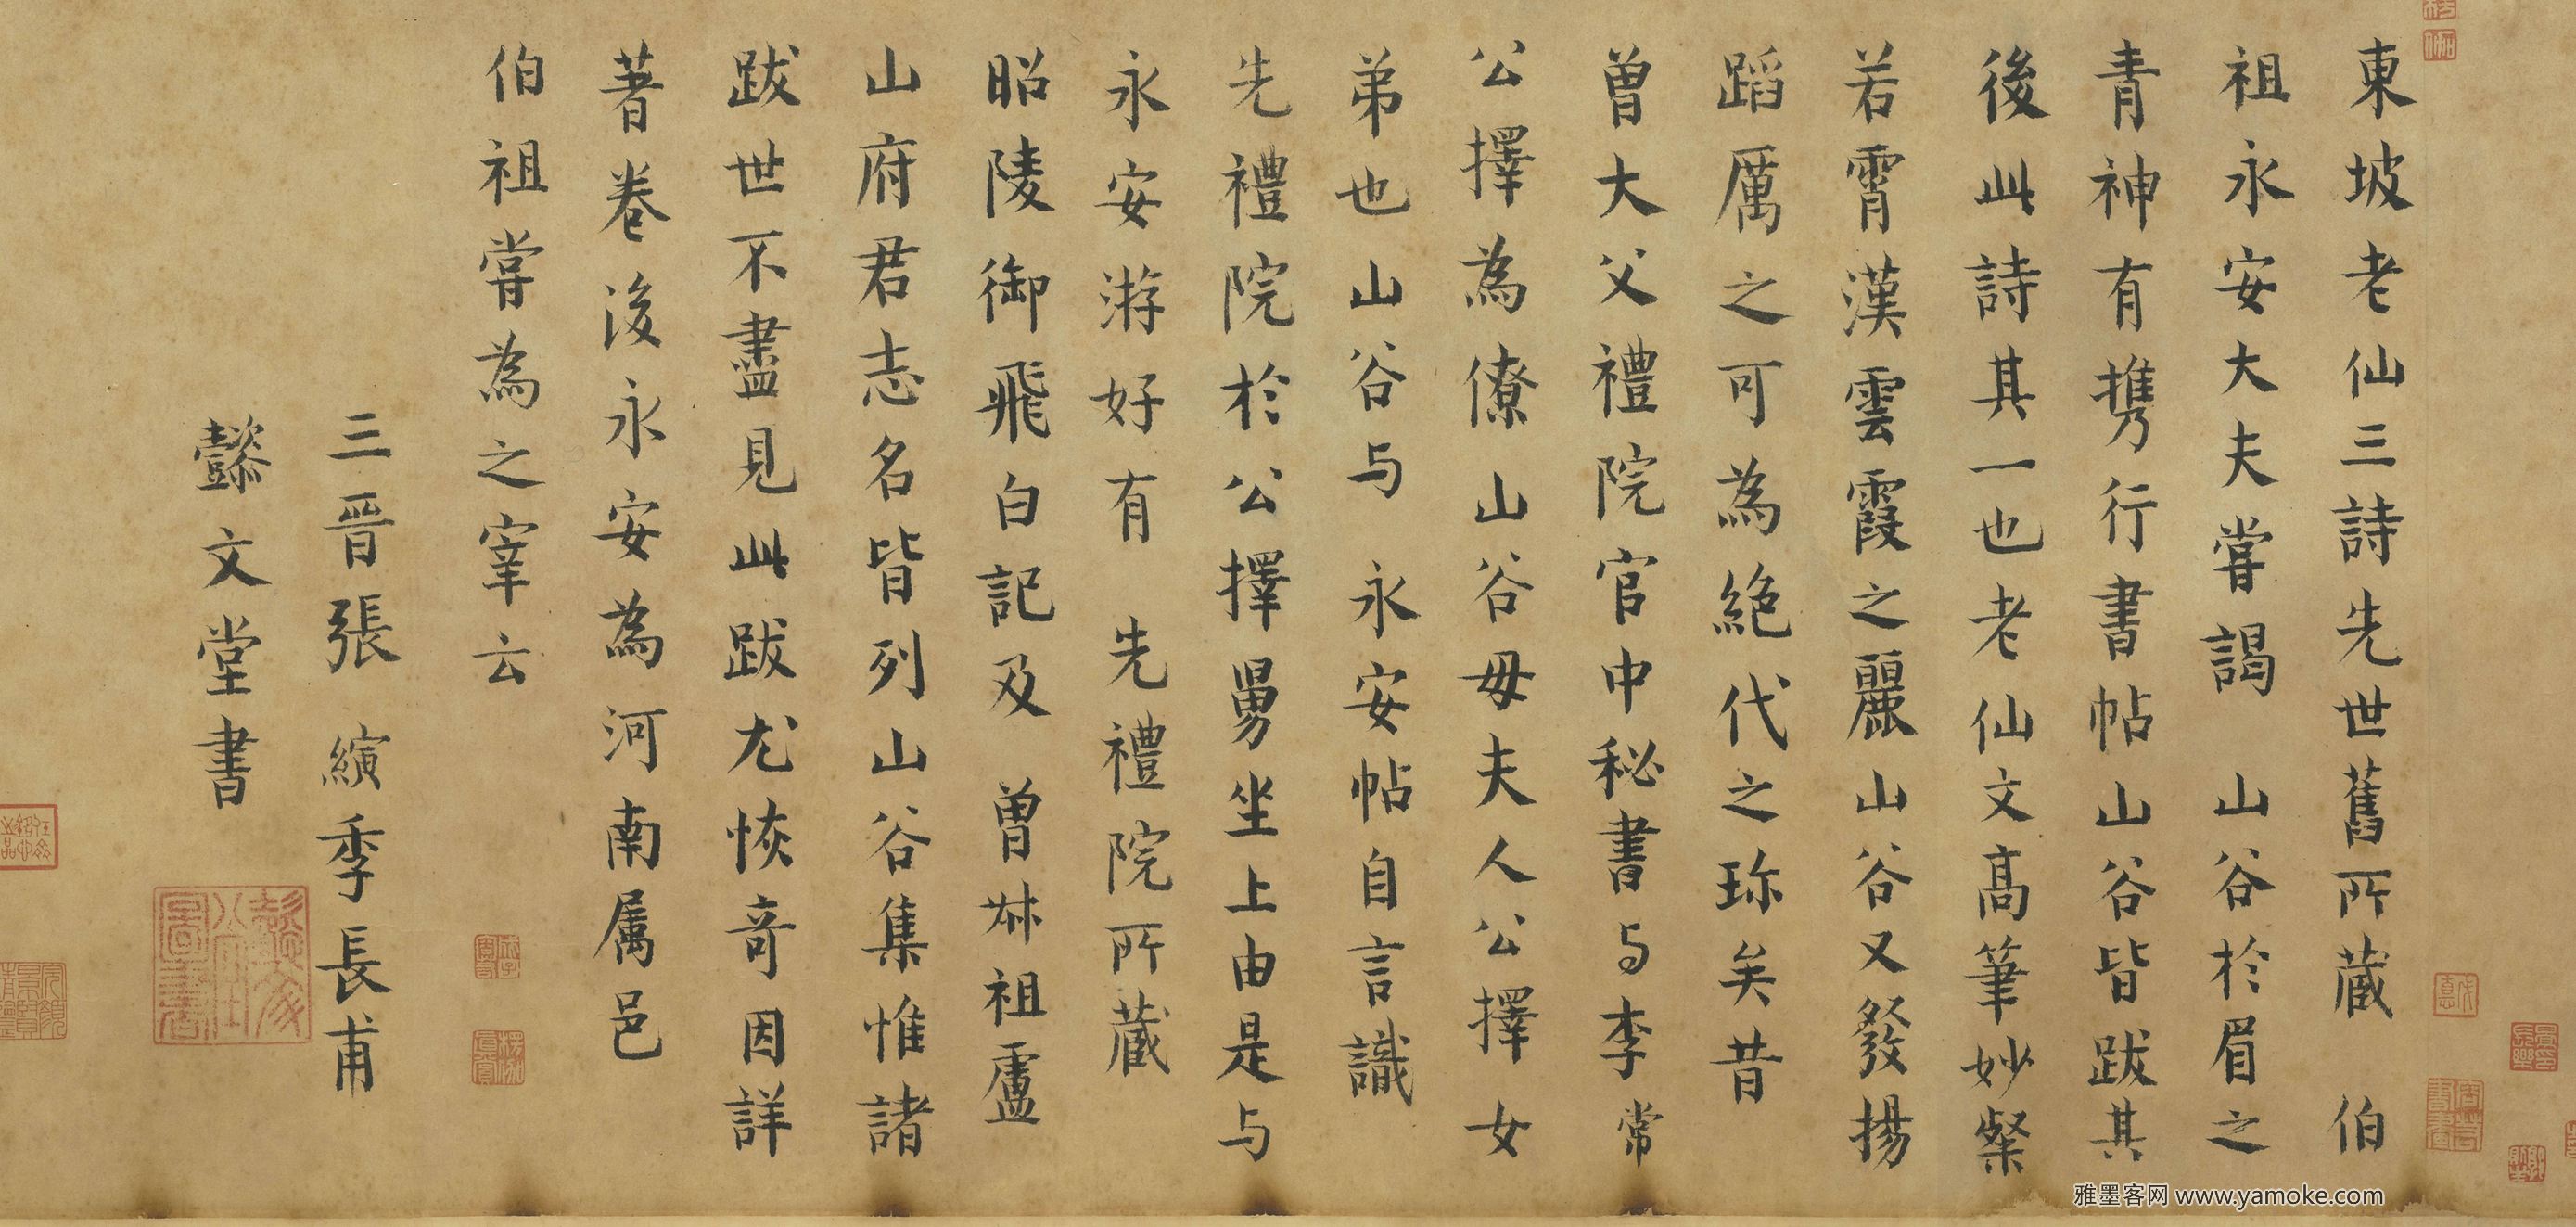 東坡老仙三詩先世舊所藏 伯
祖永安大夫嘗謁 山谷於眉之
青神有攜行書帖山谷皆跋其
後此詩其一也老仙文高筆妙粲
若霄漢雲霞之麗山谷又發揚
蹈厲之可為絕代之珎矣昔
曾大父禮院官中秘書与李常
公擇為僚山谷母夫人公擇女
弟也山谷与 永安帖自言識
先禮院於公擇舅坐上由是与
永安游好有 先禮院所藏
昭陵御飛白記及 曾叔祖盧
山府君志名皆列山谷集惟諸
跋世不盡見此跋尤恢奇因詳
著卷後永安為河南属邑
伯祖嘗為之宰云
三晉張 縯季長甫
懿文堂書
雅墨客网 www.yamoke.com